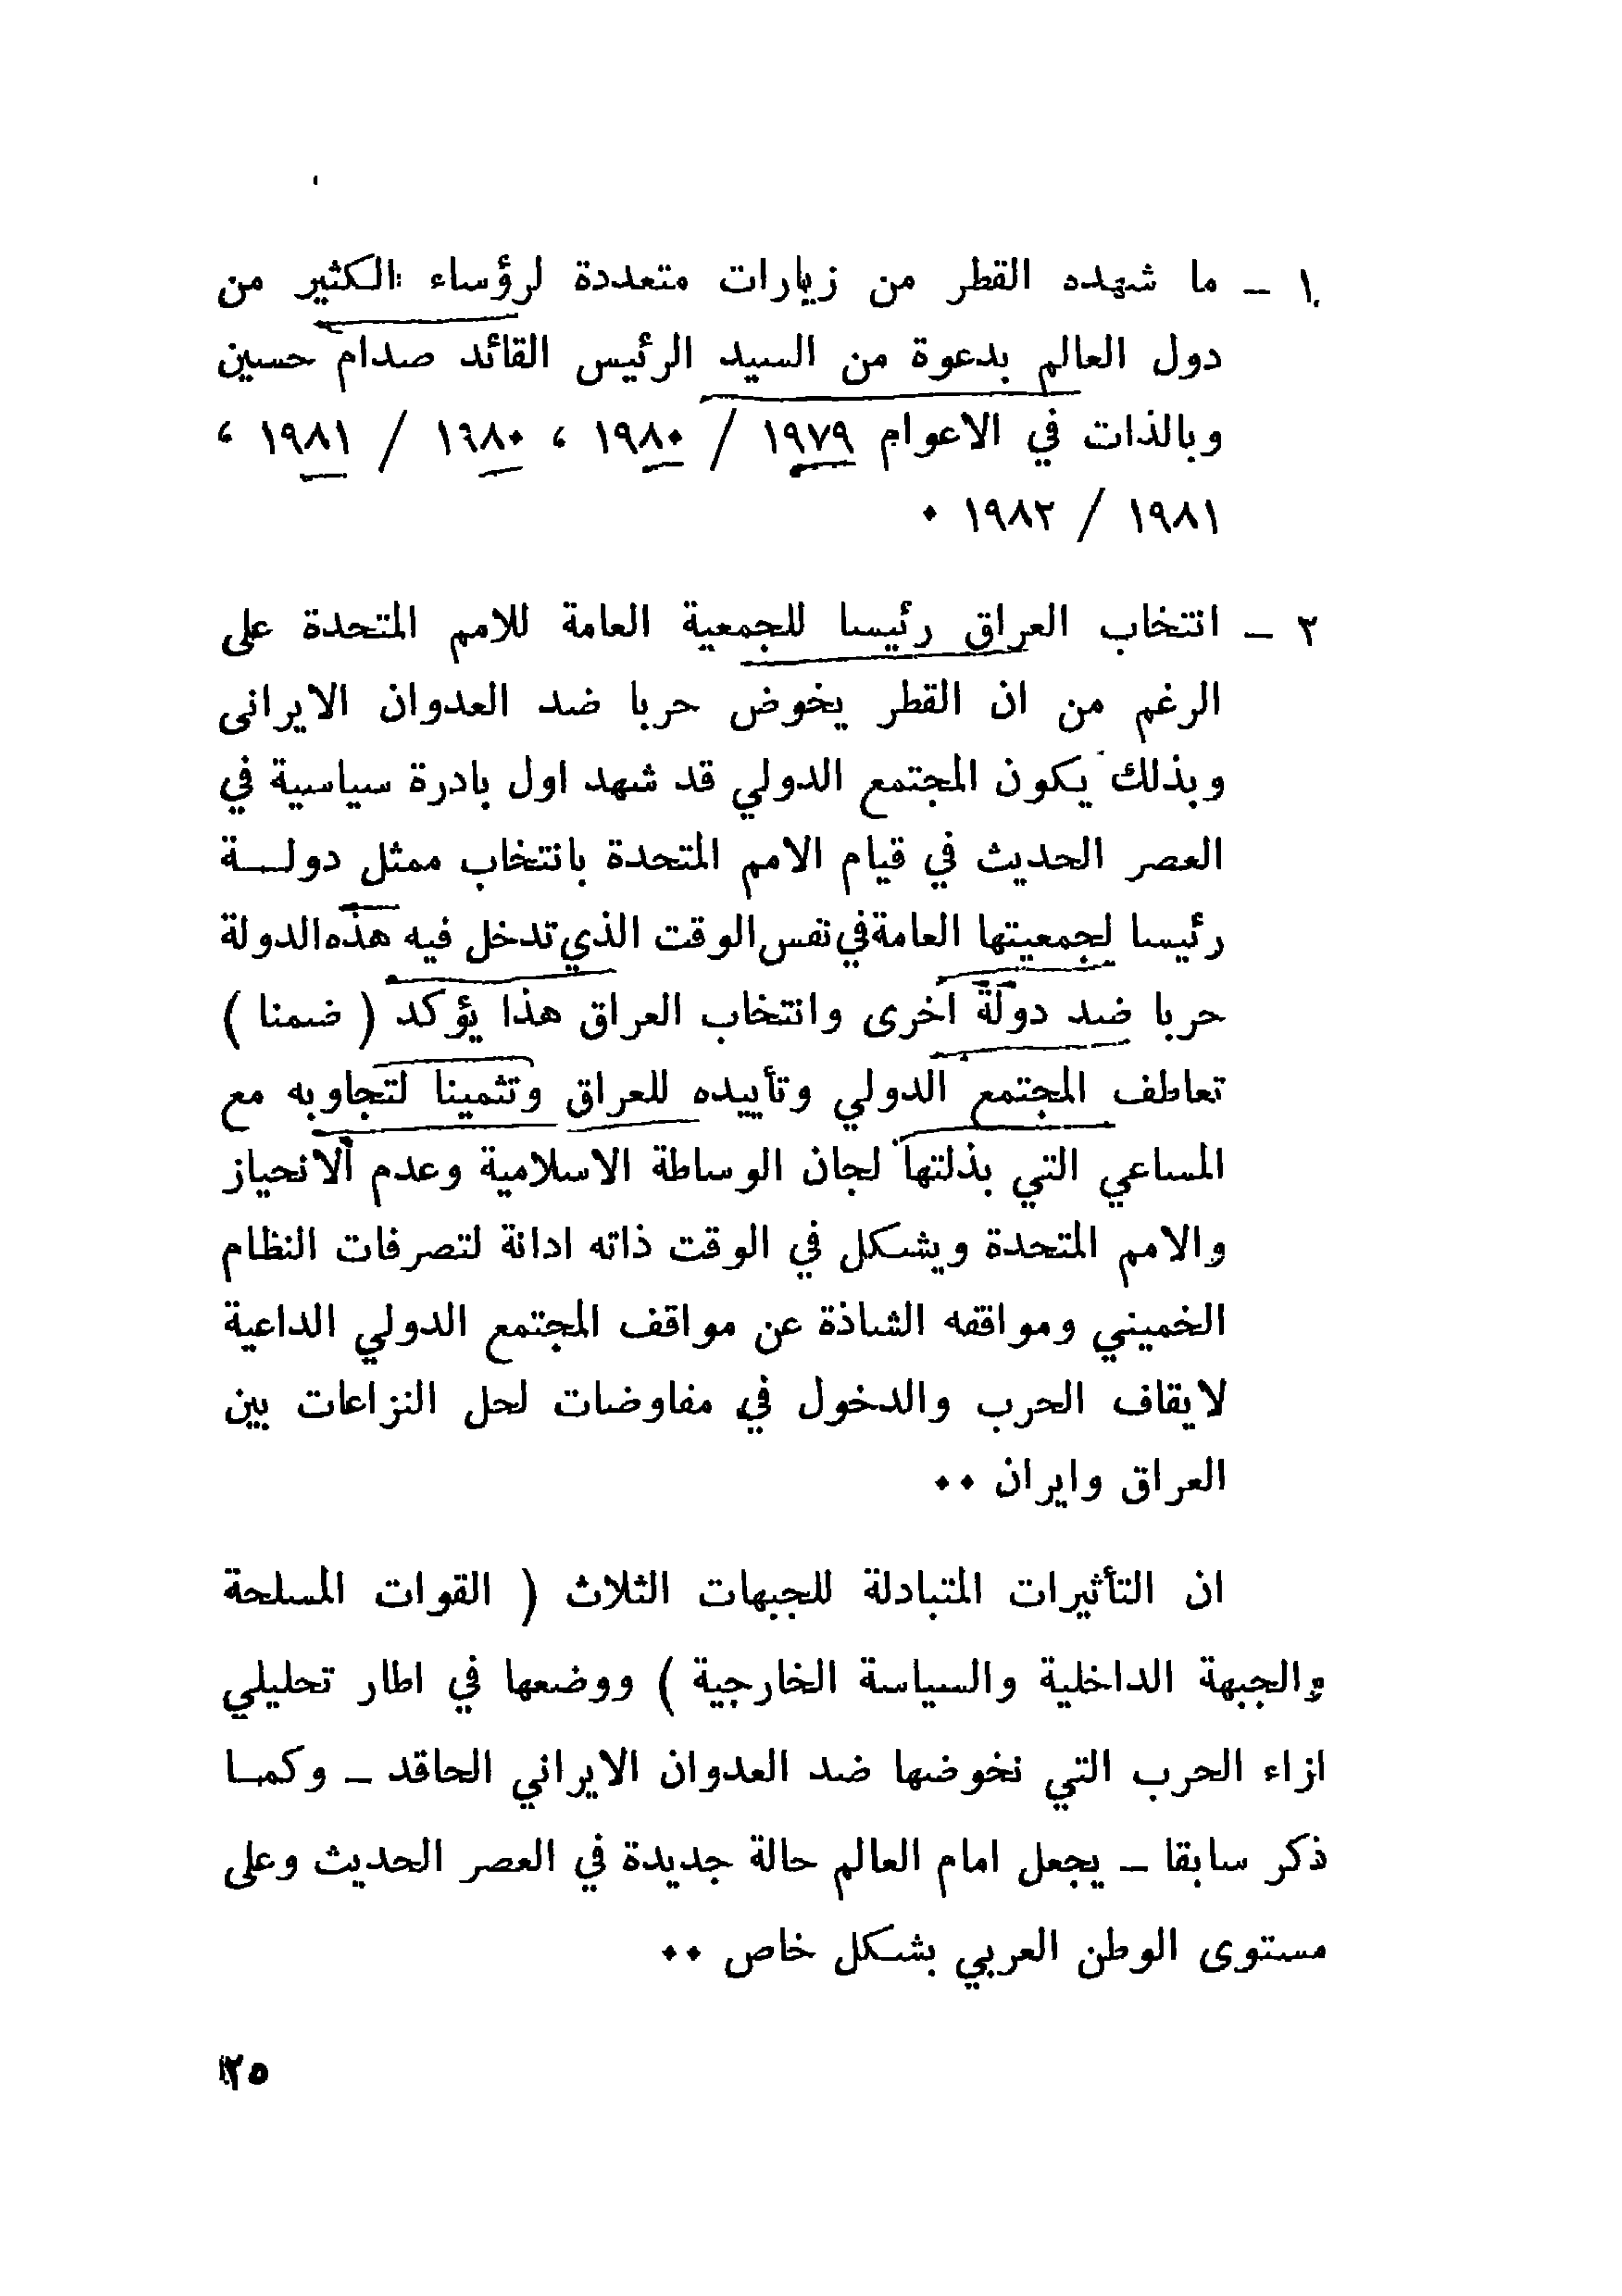 ١ ـ ما شهده القطر من زيارات متعددة لرؤساء الكثير من
دول العالم بدعوة من السيد الرئيس القائد صدام حسين
وبالذات في الاعوام ١٩٧٩ / ١٩٨٠ ، ١٩٨٠ / ١٩٨١ ،
١٩٨١ / ١٩٨٢ ٠
٢ ـ انتخاب العراق رئيسا للجمعية العامة للامم المتحدة على
الرغم من ان القطر يخوض حربا ضد العدوان الايرانى
وبذلك يكون المجتمع الدولي قد شهد اول بادرة سياسية في
العصر الحديث في قيام الامم المتحدة بانتخاب ممثل دولــة
رئيسا لجمعيتها العامة في نفس الوقت الذي تدخل فيه هذه الدولة
حربا ضد دولة اخرى وانتخاب العراق هذا يؤكد ( ضمنا )
تعاطف المجتمع الدولي وتأييده للعراق وتثمينا لتجاوبه مع
المساعي التي بذلتها لجان الوساطة الاسلامية وعدم الانحياز
والامم المتحدة ويشكل في الوقت ذاته ادانة لتصرفات النظام
الخميني ومواقفه الشاذة عن مواقف المجتمع الدولي الداعية
لايقاف الحرب والدخول في مفاوضات لحل النزاعات بين
العراق وايران ٠٠
ان التأثيرات المتبادلة للجبهات الثلاث ( القوات المسلحة
والجبهة الداخلية والسياسة الخارجية ) ووضعها في اطار تحليلي
ازاء الحرب التي نخوضها ضد العدوان الايراني الحاقد ـ وكمــا
ذكر سابقا ـ يجعل امام العالم حالة جديدة في العصر الحديث وعلى
مستوى الوطن العربي بشكل خاص ٠٠
٢٥